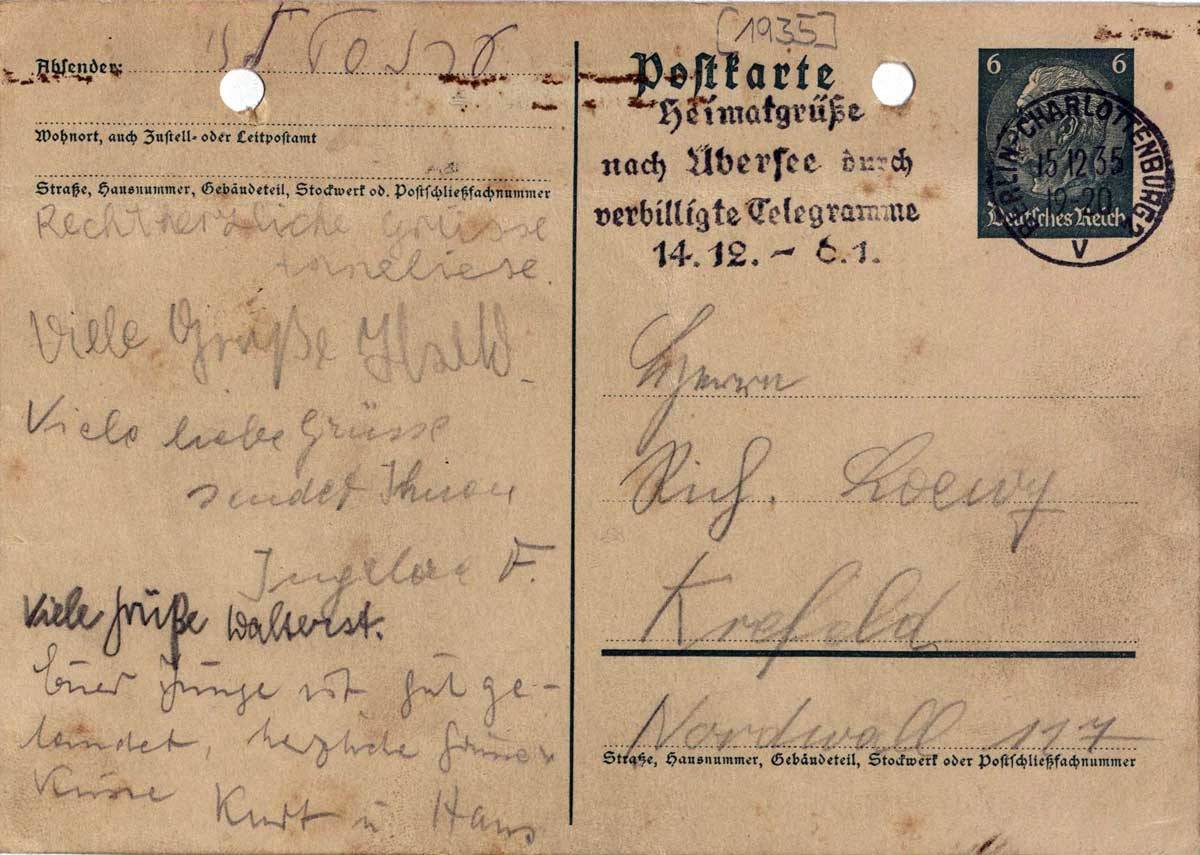 [1935]
Absender:
Wohnort, auch Zustell- oder Leitpostamt
Straße, Hausnummer, Gebäudeteil, Stockwerk od. Postschließfachnummer
Recht herzliche Grüsse
Anneliese.
Viele Grüße
Viele liebe Grüsse
sendet Ihnen
Ingelore F.
Viele Grüße Walter St.
Euer Junge ist gut ge-
landet, herzliche Grüsse
Küsse Kurt u Hans
Postkarte
Heimatgrüße
nach Übersee durch
verbilligte Telegramme
14.12. - 6.1.
6 6
Deutsches Reich
BERLIN-CHARLOTTENBURG 2
15.12.35
-20
V
Herrn
Rich. Loewy
Krefeld
Nordwall 117
Straße, Hausnummer, Gebäudeteil, Stockwerk oder Postschließfachnummer